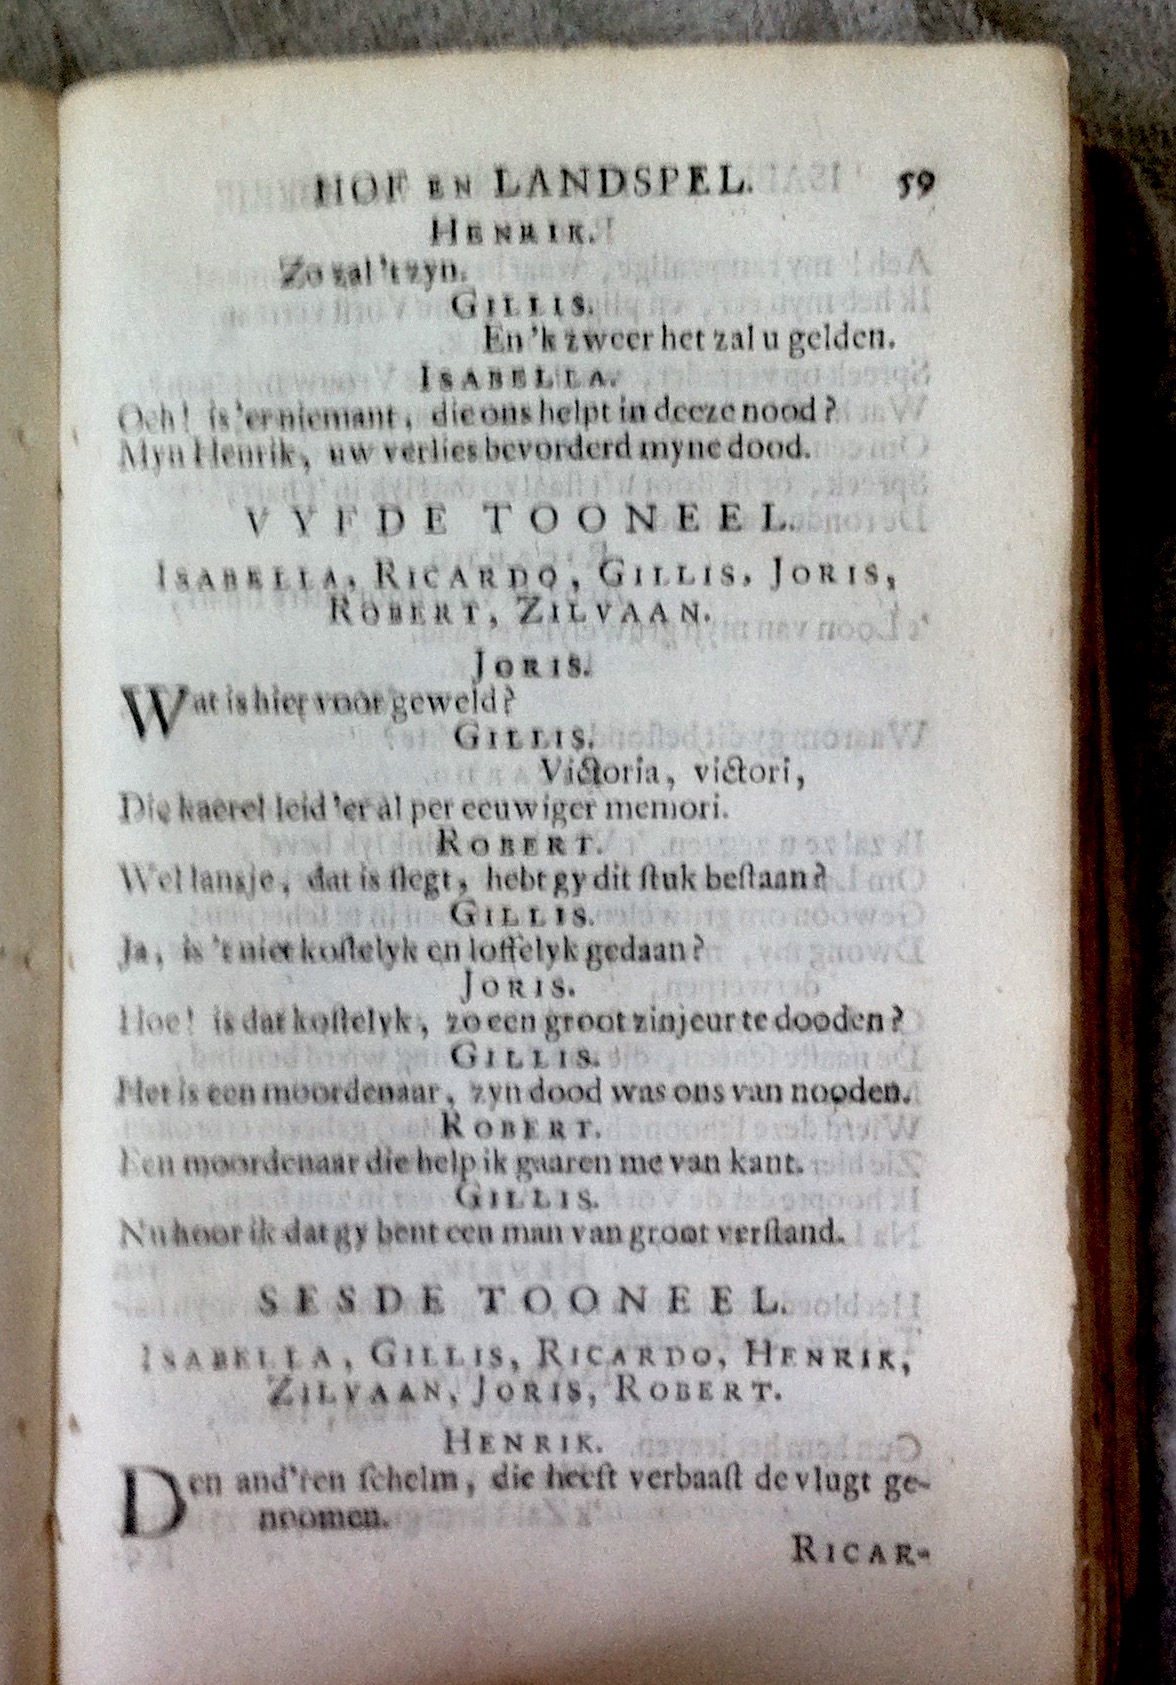 HOF EN LANDSPEL. 59
HENRIK.
Zo zal 't zyn.
GILLIS.
En 'k zweer het zal u gelden.
ISABELLA.
Och! is 'er niemant, die ons helpt in deeze nood?
Myn Henrik, uw verlies bevorderd myne dood.
VYFDE TOONEEL.
ISABELLA, RICARDO, GILLIS, JORIS,
ROBERT, ZILVAAN.
JORIS.
Wat is hier voor geweld?
GILLIS.
Victoria, victori,
Die kaerel leid 'er al per eeuwiger memori.
ROBERT.
Wel lansje, dat is ſlegt, hebt gy dit ſtuk beſtaan?
GILLIS.
Ja, is 't niet koſtelyk en loffelyk gedaan?
JORIS.
Hoe! is dat koſtelyk, zo een groot zinjeur te dooden?
GILLIS.
Het is een moordenaar, zyn dood was ons van nooden.
ROBERT.
Een moordenaar die help ik gaaren me van kant.
GILLIS.
Nu hoor ik dat gy bent een man van groot verſtand.
SESDE TOONEEL.
ISABELLA, GILLIS, RICARDO, HENRIK,
ZILVAAN, JORIS, ROBERT.
HENRIK.
Den and'ren ſchelm, die heeft verbaaſt de vlugt ge-
noomen.
RICAR-